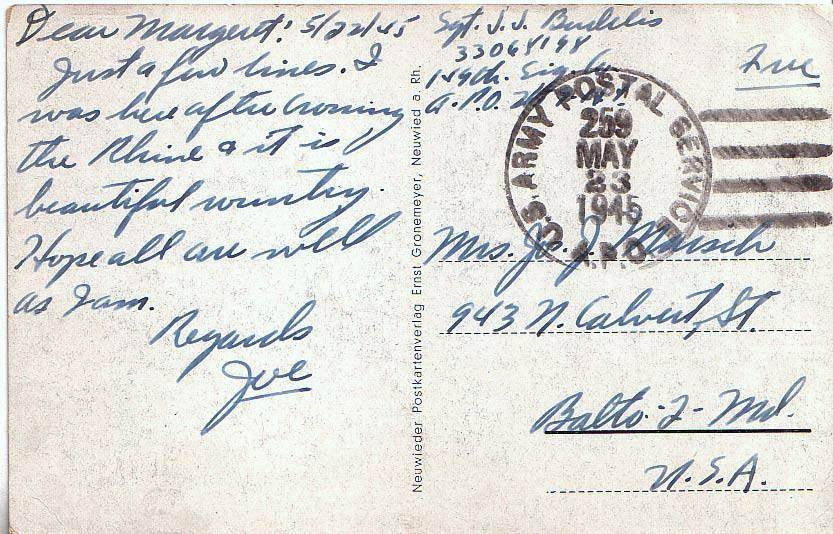 Dear Margaret! 5/22/45
Just a few lines. I
was here after crossing
the Rhine & it is
beautiful country.
Hope all are well
as I am.
Regards
Joe
Neuwieder Postkartenverlag Ernst Gronemeyer, Neuwied a. Rh.
Sgt. J. J.
149th. Sig. Co.
A.P.O.
Free
U.S. ARMY POSTAL SERVICE
259
MAY
23
1945
A.P.O.
Mrs. Jos. J.
943 N. Calvert, St.
Balto-2-Md.
U.S.A.